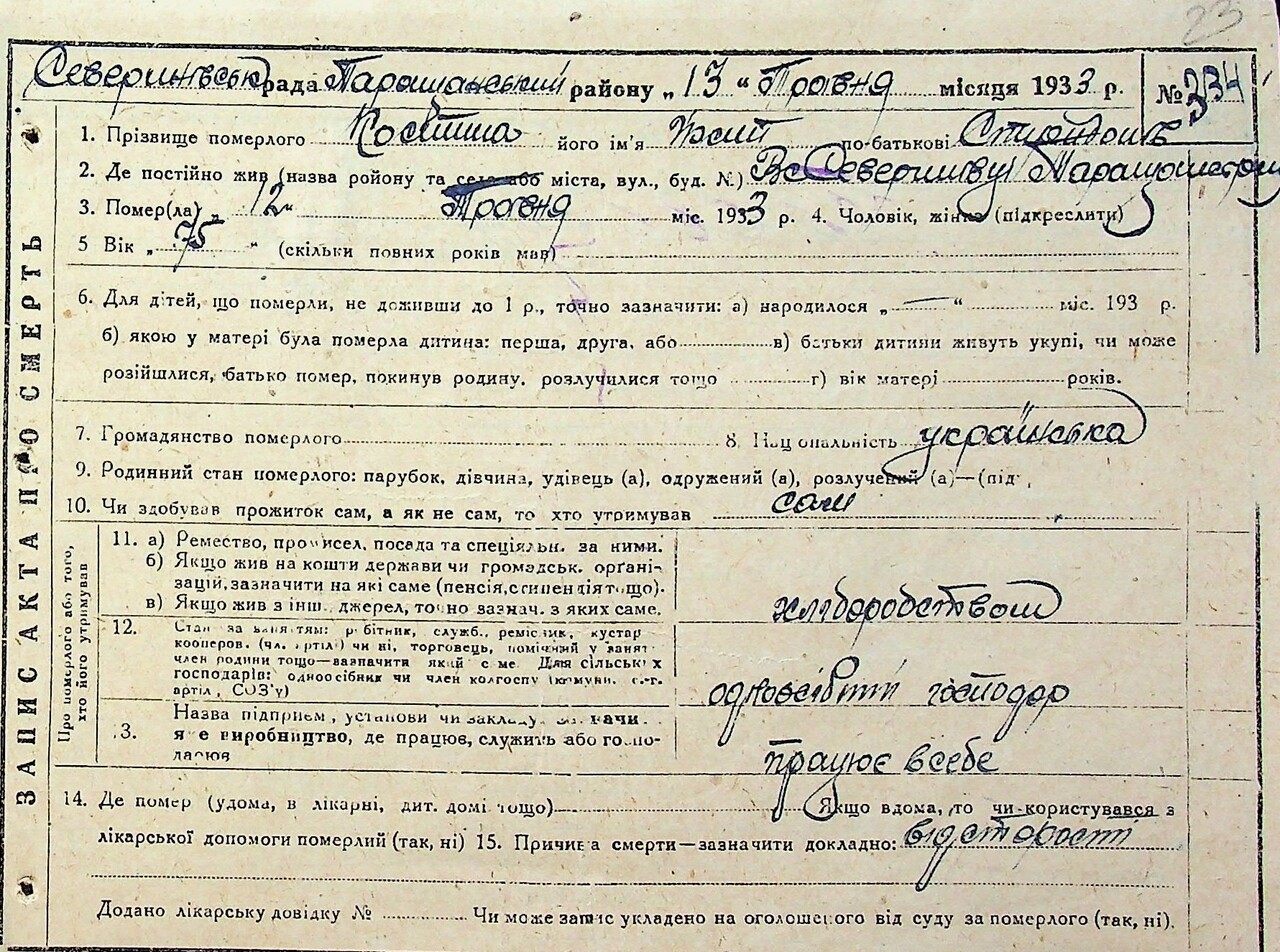 23
рада Таращанський району „ 13 “ Травня місяця 1933 р. № 334
1. Прізвище померлого його ім'я по-батькові
2. Де постійно жив (назва району та села або міста, вул., буд. №)
3. Помер(ла) „ 12 “ Травня міс. 1933 р. 4. Чоловік, жінка (підкреслити)
5 Вік „ 75 “ (скільки повних років мав)
6. Для дітей, що померли, не доживши до 1 р., точно зазначити: а) народилося „ — “ міс. 193 р.
б) якою у матері була померла дитина: перша, друга, або в) батьки дитини живуть укупі, чи може
розійшлися, батько помер, покинув родину, розлучилися тощо г) вік матері років.
7. Громадянство померлого 8. Національність українська
9. Родинний стан померлого: парубок, дівчина, удівець (а), одружений (а), розлучений (а)—(під
10. Чи здобував прожиток сам, а як не сам, то хто утримував сам
ЗАПИС АКТА ПРО СМЕРТЬ
Про померлого або того,
хто його утримував
11. а) Ремество, промисел, посада та спеціяльн. за ними.
б) Якщо жив на кошти держави чи громадськ. орґані-
зацій, зазначити на які саме (пенсія, стипендія тощо).
в) Якщо жив з інш. джерел, точно зазнач. з яких саме.
хліборобством
12. Стан за заняттям: робітник, служб., ремісник, кустар
кооперов. (чл. артілі) чи ні, торговець, помічний у занят.
член родини тощо—зазначити який саме. Для сільських
господарів: одноосібник чи член колгоспу (комуни, с.-г.
артіл., СОЗ'у)
господар
Назва підприєм., установи чи закладу,
13. яке виробництво, де працюв, служить або госпо-
дарюв
працює всебе
14. Де помер (удома, в лікарні, дит. домі тощо) Якщо вдома, то чи користувався з
лікарської допомоги померлий (так, ні) 15. Причина смерти—зазначити докладно: від старості
Додано лікарську довідку № Чи може запис укладено на оголошеного від суду за померлого (так, ні).